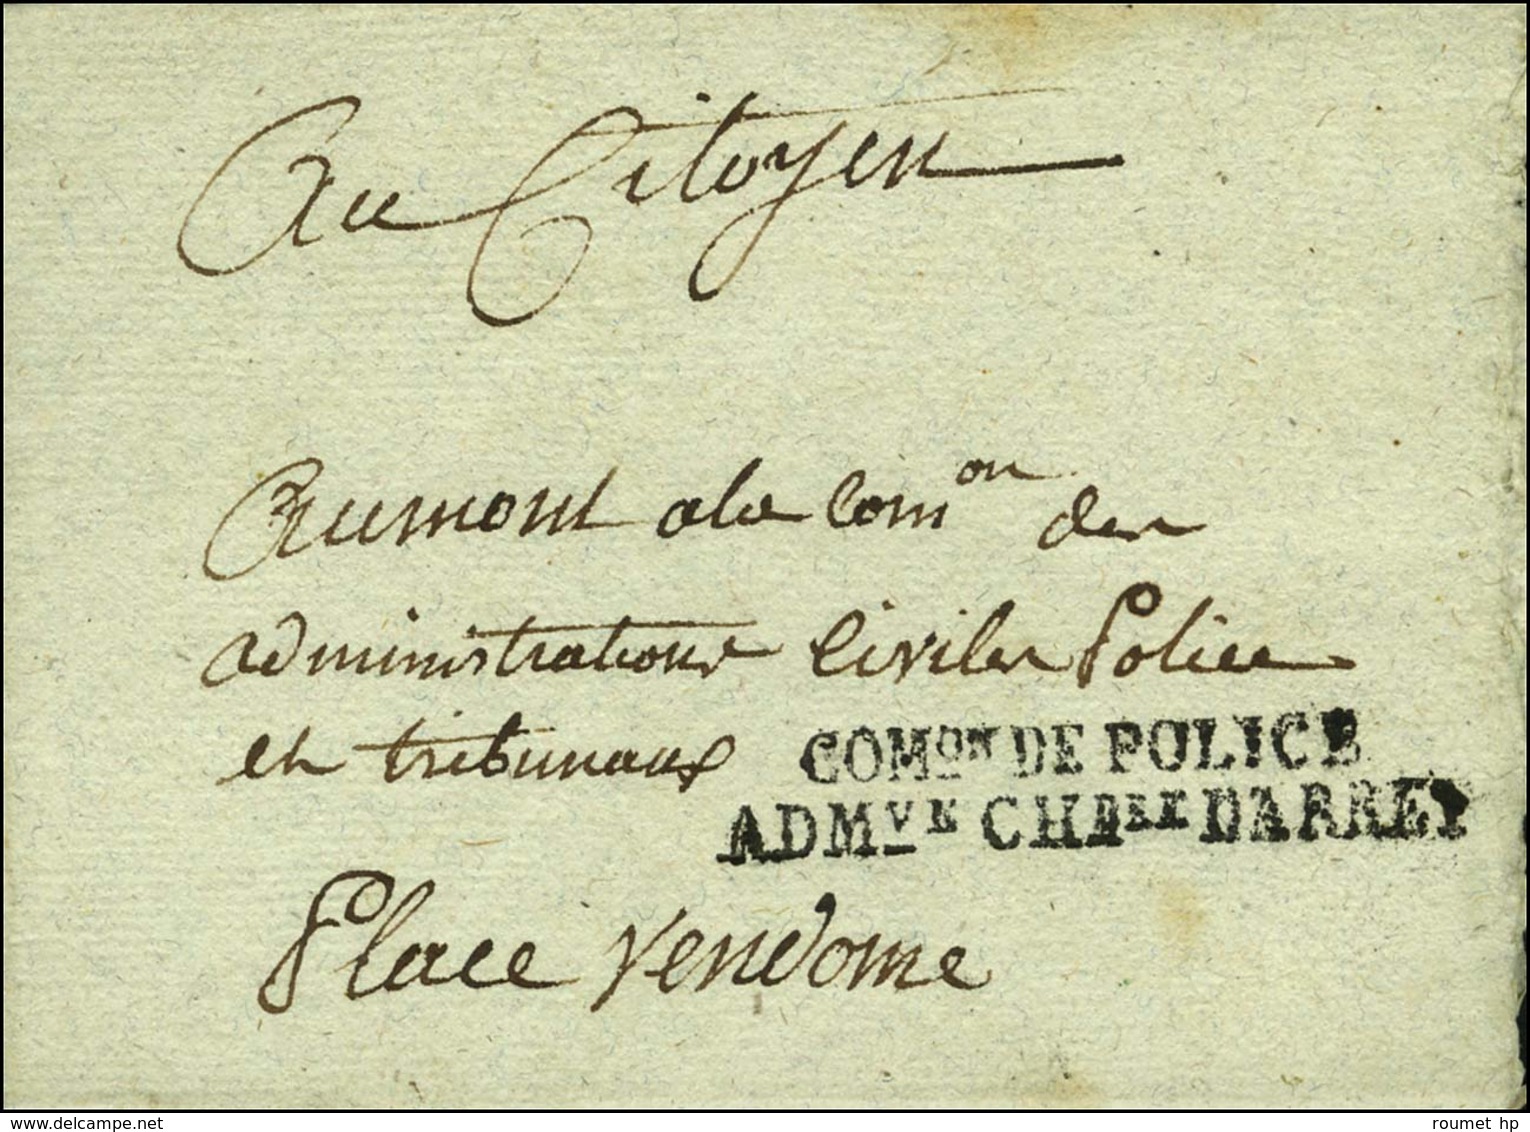 Au Citoyen
Aumont a la Com^on des
administrations Civiles Police
et tribunaux
COM^ON DE POLICE
ADM^VE CH^P^LLE DARREY
Place Vendome
delcampe.net
roumet_hp